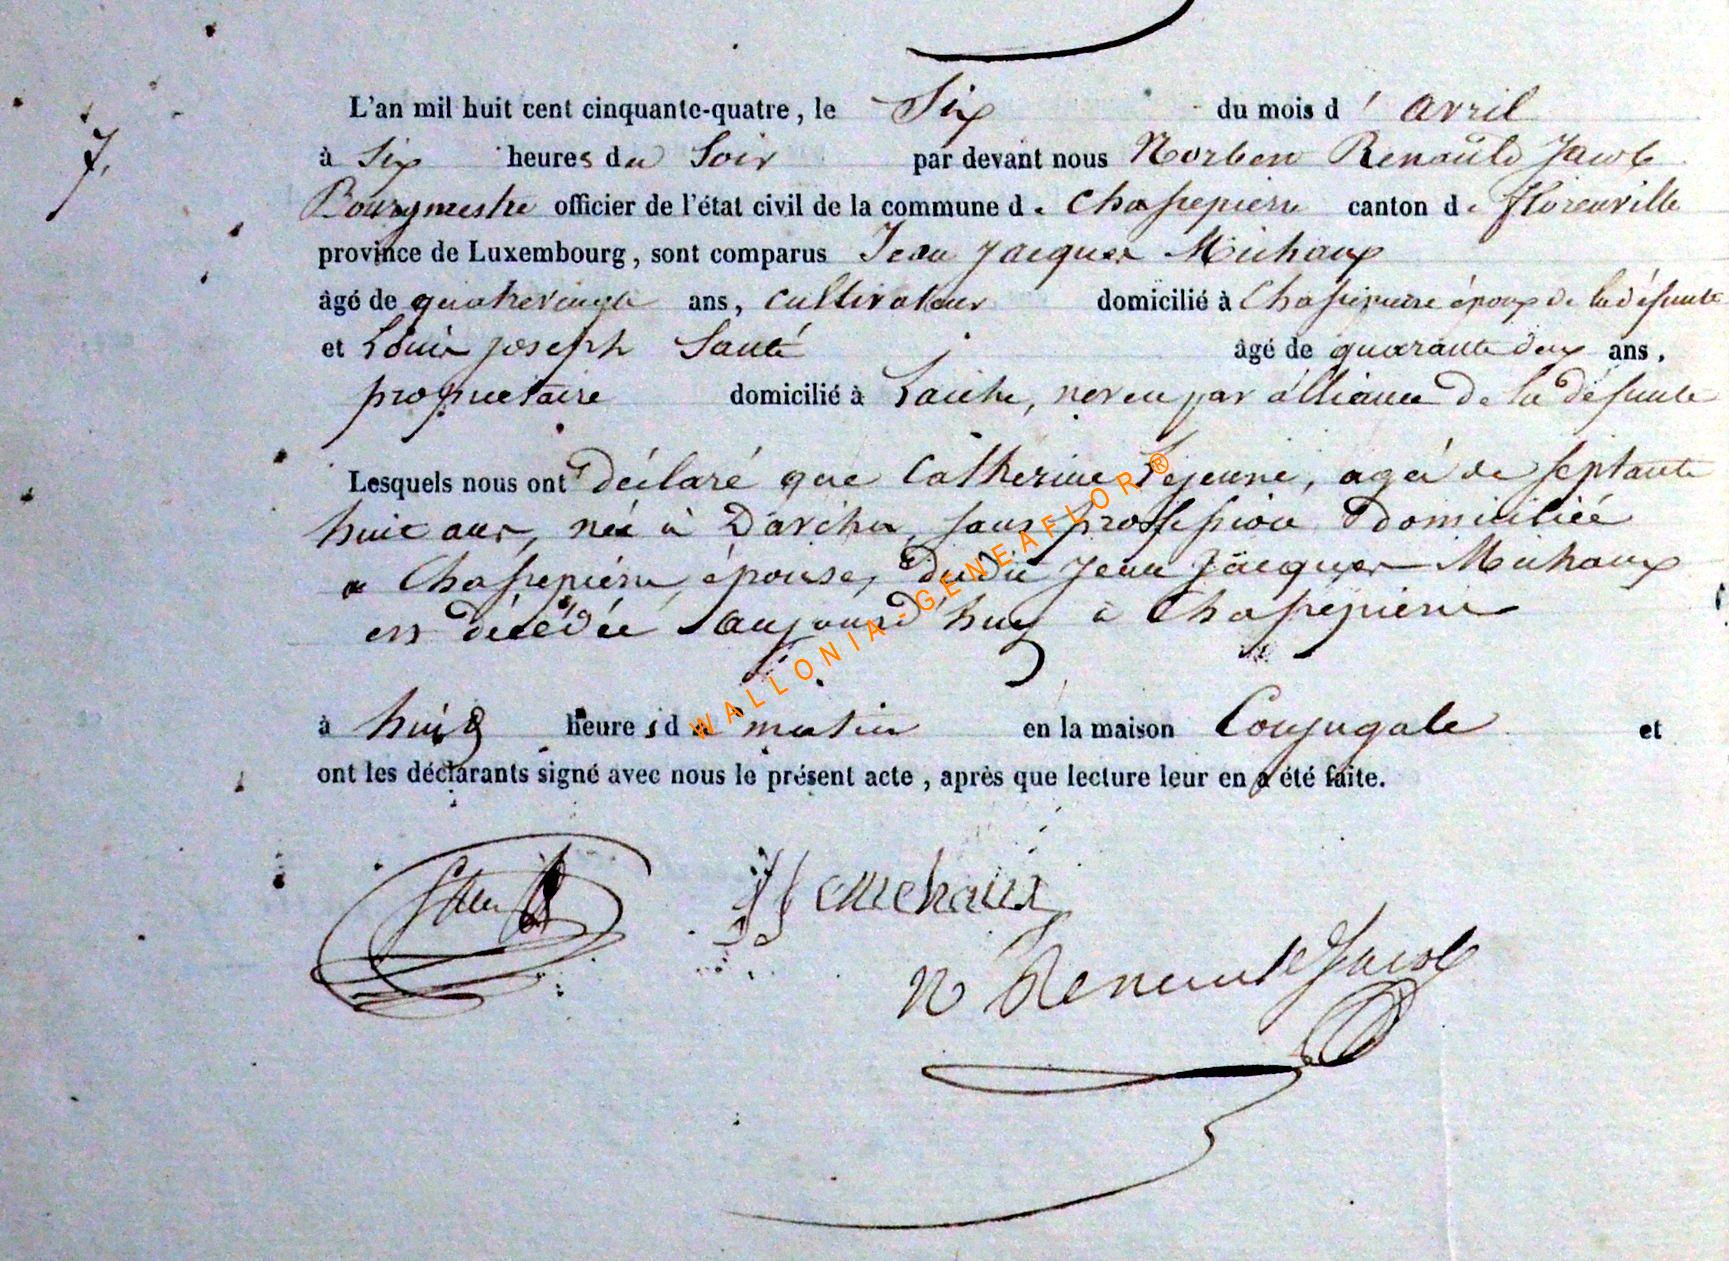 L'an mil huit cent cinquante-quatre, le Six du mois d' avril
7,
à Six heures du Soir par devant nous Norbert Renauld Jacob
Bourgmestre officier de l'état civil de la commune de Chassepierre canton de florenville
province de Luxembourg, sont comparus Jean Jacques Michaux
âgé de quatrevingts ans, cultivateur domicilié à Chassepierre époux de la défunte
et Louis joseph Santé âgé de quarante deux ans,
propriétaire domicilié à Laiche, neveu par alliance de la défunte
Lesquels nous ont déclaré que Catherine Lejeune, agée de septante
huit ans, née à sans profession domiciliée
a Chassepierre, épouse, dudit Jean Jacques Michaux
est décédée aujourd'huy à Chassepierre
à huit heures du matin en la maison Conjugale et
ont les déclarants signé avec nous le présent acte, après que lecture leur en a été faite.
JJ michaux
N Renauld Jacob
WALLONIA-GENEAFLOR®